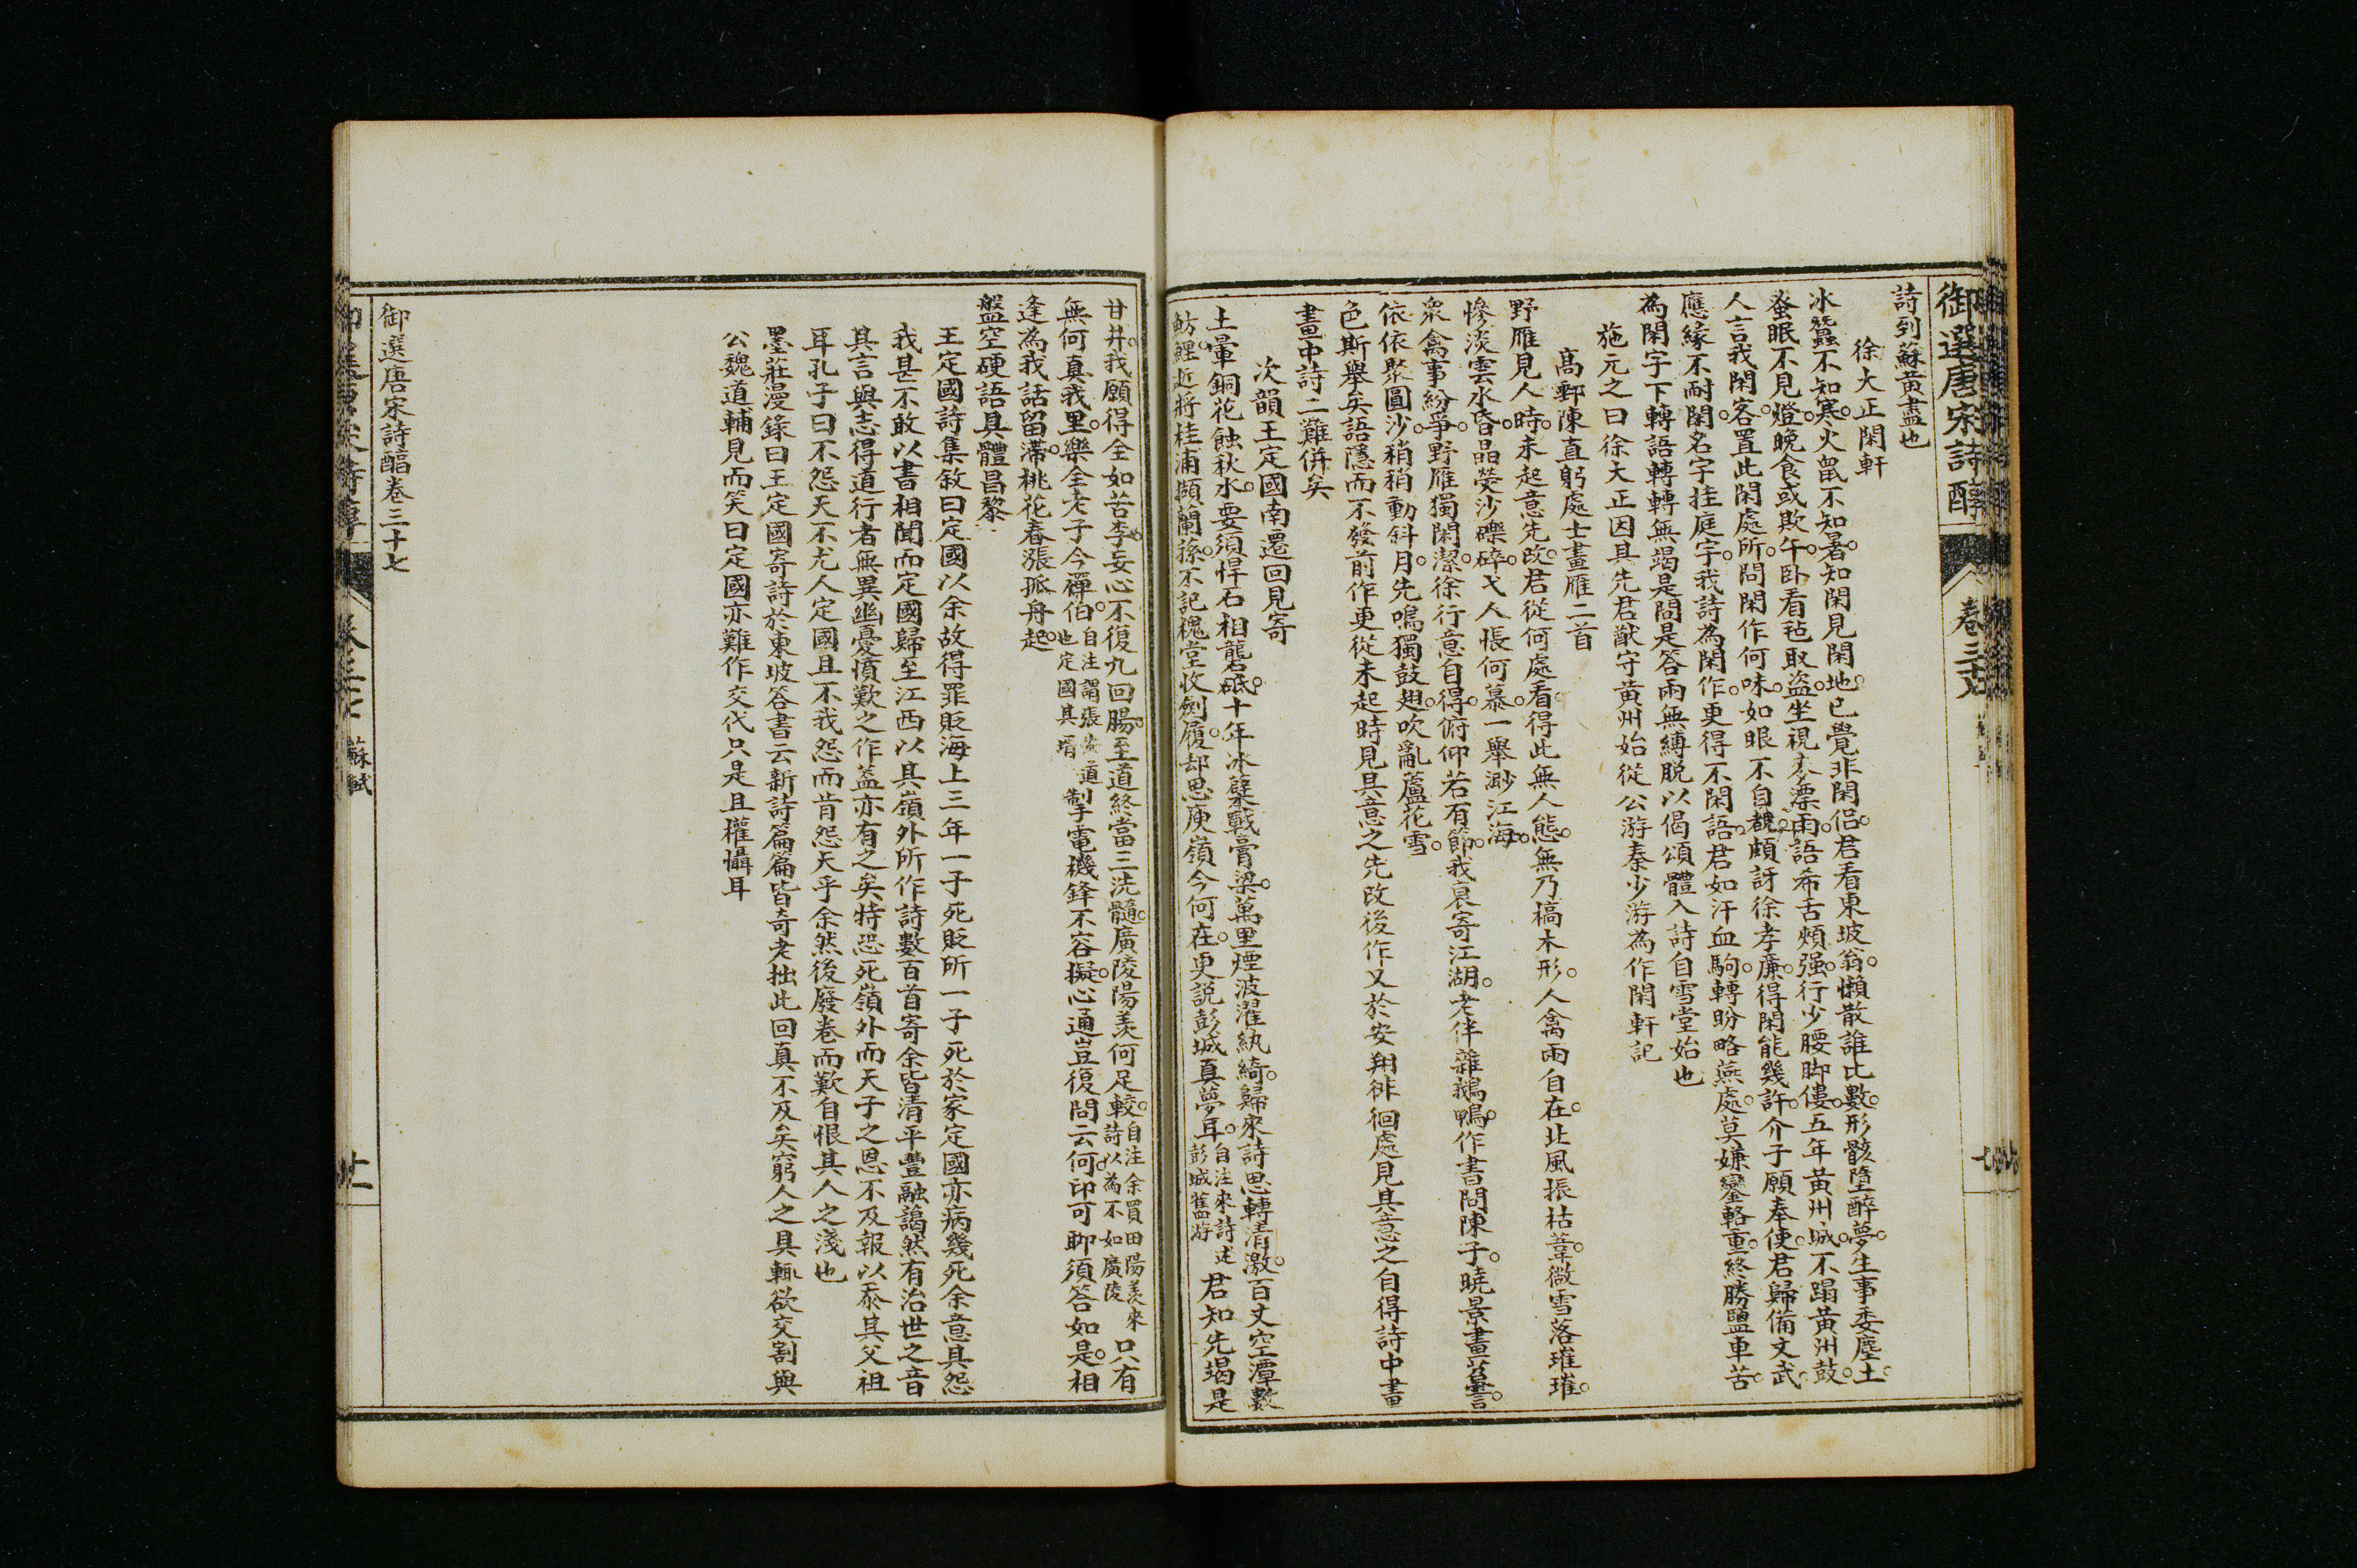 御選唐宋詩醇
卷三十七
詩列蘇黄盡也
徐大正閑軒
冰蠶不知寒火鼠不知暑知閑見閑地已覺非閑侣君看東坡翁懶散誰比數形骸墮醉夢生事委塵土
蚤眠不見燈晚食或欺午卧看毡取盗坐視麥漂雨語希舌頰强行少腰脚僂五年黄州城不蹋黄州鼓
人言我閑客置此閑處所問閑作何味如眼不自覩頗訝徐孝廉得閑能幾許介子願奉使君歸備文武
應緣不耐閑名字挂庭宇我詩為閑作更得不閑語君如汗血駒轉盼略燕處莫嫌鑾輅重終勝鹽車苦
為閑字下轉語轉轉無竭是問是答兩無縛脱以偈頌體入詩自雪堂始也
施元之曰徐大正因其先君猷守黄州始從公游秦少游為作閑軒記
高郵陳直躬處士畫雁二首
野雁見人時未起意先改君從何處看得此無人態無乃槁木形人禽兩自在北風振枯葦微雪落璀璀
慘淡雲水昏晶熒沙礫碎弋人悵何慕一舉渺江海
衆禽事紛爭野雁獨閑潔徐行意自得俯仰若有節我衰寄江湖老伴雜鵝鴨作書問陳子曉景畫苕霅
依依聚圓沙稍稍動斜月先鳴獨鼓翅吹亂蘆花雪
色斯舉矣語隱而不發前作更從未起時見其意之先改後作又於安翔徘徊處見其意之自得詩中畫
畫中詩二難併矣
次韻王定國南遷回見寄
土暈銅花蝕秋水要須悍石相礲砥十年冰糵戰膏粱萬里煙波濯紈綺歸來詩思轉清激百丈空潭數
魴鯉逝將桂浦擷蘭蓀不記槐堂收劍履却思庾嶺今何在更説彭城真夢耳自注來詩述彭城舊游君知先竭是
甘井我願得全如苦李妄心不復九回腸至道終當三洗髓廣陵陽羨何足較自注余買田陽羨來詩以為不如廣陵只有
無何真我里樂全老子今禪伯自注謂張安道也定國其壻掣電機鋒不容擬心通豈復問云何印可聊須答如是相
逢為我話留滯桃花春漲孤舟起
盤空硬語具體昌黎
王定國詩集敘曰定國以余故得罪貶海上三年一子死貶所一子死於家定國亦病幾死余意其怨
我甚不敢以書相聞而定國歸至江西以其嶺外所作詩數百首寄余皆清平豐融藹然有治世之音
其言與志得道行者無異幽憂憤歎之作葢亦有之矣特恐死嶺外而天子之恩不及報以忝其父祖
耳孔子曰不怨天不尤人定國且不我怨而肯怨天乎余然後廢卷而歎自恨其人之淺也
墨莊漫錄曰王定國寄詩於東坡答書云新詩篇篇皆奇老拙此回真不及矣窮人之具輒欲交割與
公魏道輔見而笑曰定國亦難作交代只是且權攝耳
御選唐宋詩醕卷三十七
卷三十七
蘇軾